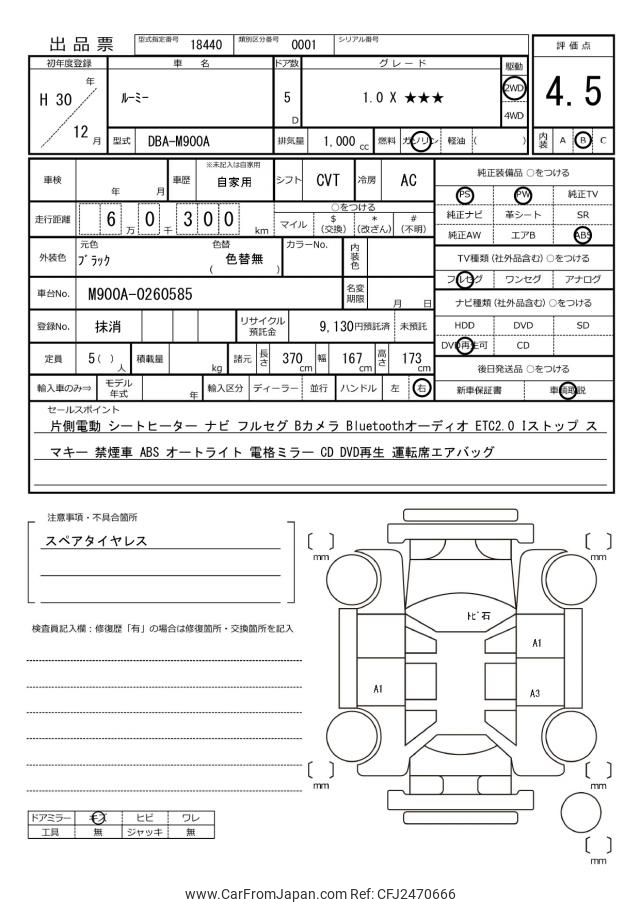 出品票 型式指定番号 18440 類別区分番号 0001 シリアル番号
評価点
4.5
内装 A B C
初年度登録 車 名 ドア数 グレード 駆動
H 30 年 12 月 ルーミー 5 D 1.0 X ★★★ 2WD 4WD
型式 DBA-M900A 排気量 1,000 cc 燃料 ガソリン 軽油 ( )
車検 年 月 車歴 ※未記入は自家用 自家用 シフト CVT 冷房 AC
走行距離 6 万 0 千 3 0 0 km
○をつける
マイル $(交換) *(改ざん) #(不明)
外装色 元色 ブラック 色替 ( 色替無 ) カラーNo. 内装色
車台No. M900A-0260585 名変期限 月 日
登録No. 抹消 リサイクル預託金 9,130円預託済 未預託
定員 5( )人 積載量 kg 諸元 長さ 370cm 幅 167cm 高さ 173cm
輸入車のみ⇒ モデル年式 年 輸入区分 ディーラー 並行 ハンドル 左 右
純正装備品 ○をつける
PS PW 純正TV
純正ナビ 革シート SR
純正AW エアB ABS
TV種類(社外品含む)○をつける
フルセグ ワンセグ アナログ
ナビ種類(社外品含む)○をつける
HDD DVD SD
DVD再生可 CD
後日発送品 ○をつける
新車保証書 車輌取説
セールスポイント
片側電動 シートヒーター ナビ フルセグ Bカメラ Bluetoothオーディオ ETC2.0 Iストップ ス
マキー 禁煙車 ABS オートライト 電格ミラー CD DVD再生 運転席エアバッグ
注意事項・不具合箇所
スペアタイヤレス
検査員記入欄：修復歴「有」の場合は修復箇所・交換箇所を記入
mm mm
トビ石
A1
A1 A3
mm mm
mm
ドアミラー キズ ヒビ ワレ
工具 無 ジャッキ 無
www.CarFromJapan.com Ref: CFJ2470666